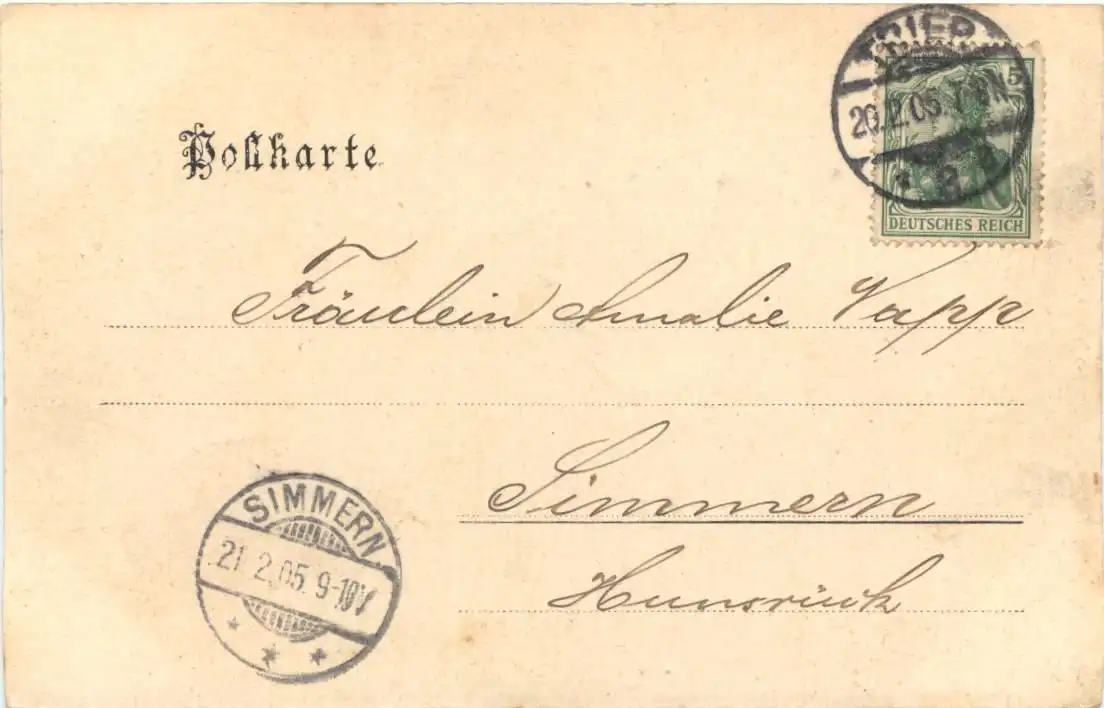 TRIER
20.2.05.7-8N
5
DEUTSCHES REICH
Postkarte
Fräulein Amalie Vapp
Simmern
Hunsrück
SIMMERN
21.2.05.9-10V